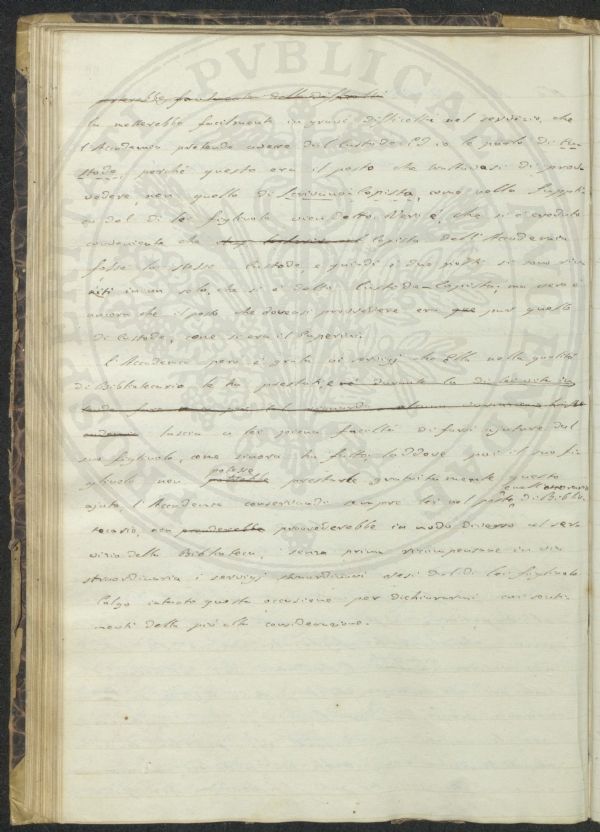 PVBLICAE
potrebbe facilmente dalle difficoltà
la metterebbe facilmente in gravi difficoltà nel servizio, che
l'Accademia pretende avere dal Custode. Ed io le parlo di Cu-
stode, perché questo era il posto che trattavasi di prov-
vedere, non quello di Scrivano Copista, come nella supplica
del di lei figliuolo vien detto. Vero è, che si è creduto
conveniente che Copista dell'Accademia
fosse lo stesso Custode, e quindi i due posti si sono riu-
niti in un solo, che si è detto Custode-Copista; ma vero è
ancora che il posto che doveasi provvedere era que pur quello
di Custode, come si era il
L'Accademia però è grata ai servigj che Ella nella qualità
di Bibliotecario le ha prestati, e durante la di lei vita
lascia a lei piena facoltà di farsi ajutare dal
suo figliuolo, come sinora ha fatto; laddove poi il suo fi-
gliuolo non potesse prestarle gratuitamente questo
ajuto, l'Accademia conservando sempre lei nel posto onorario di Biblio-
tecario, non prenderebbe provvederebbe in modo diverso al ser-
vizio della Biblioteca, senza prima ricompensare in via
straordinaria i servigj straordinarj resi dal di lei figliuolo.
Colgo intanto questa occasione per dichiararmi coi senti-
menti della più alta considerazione.